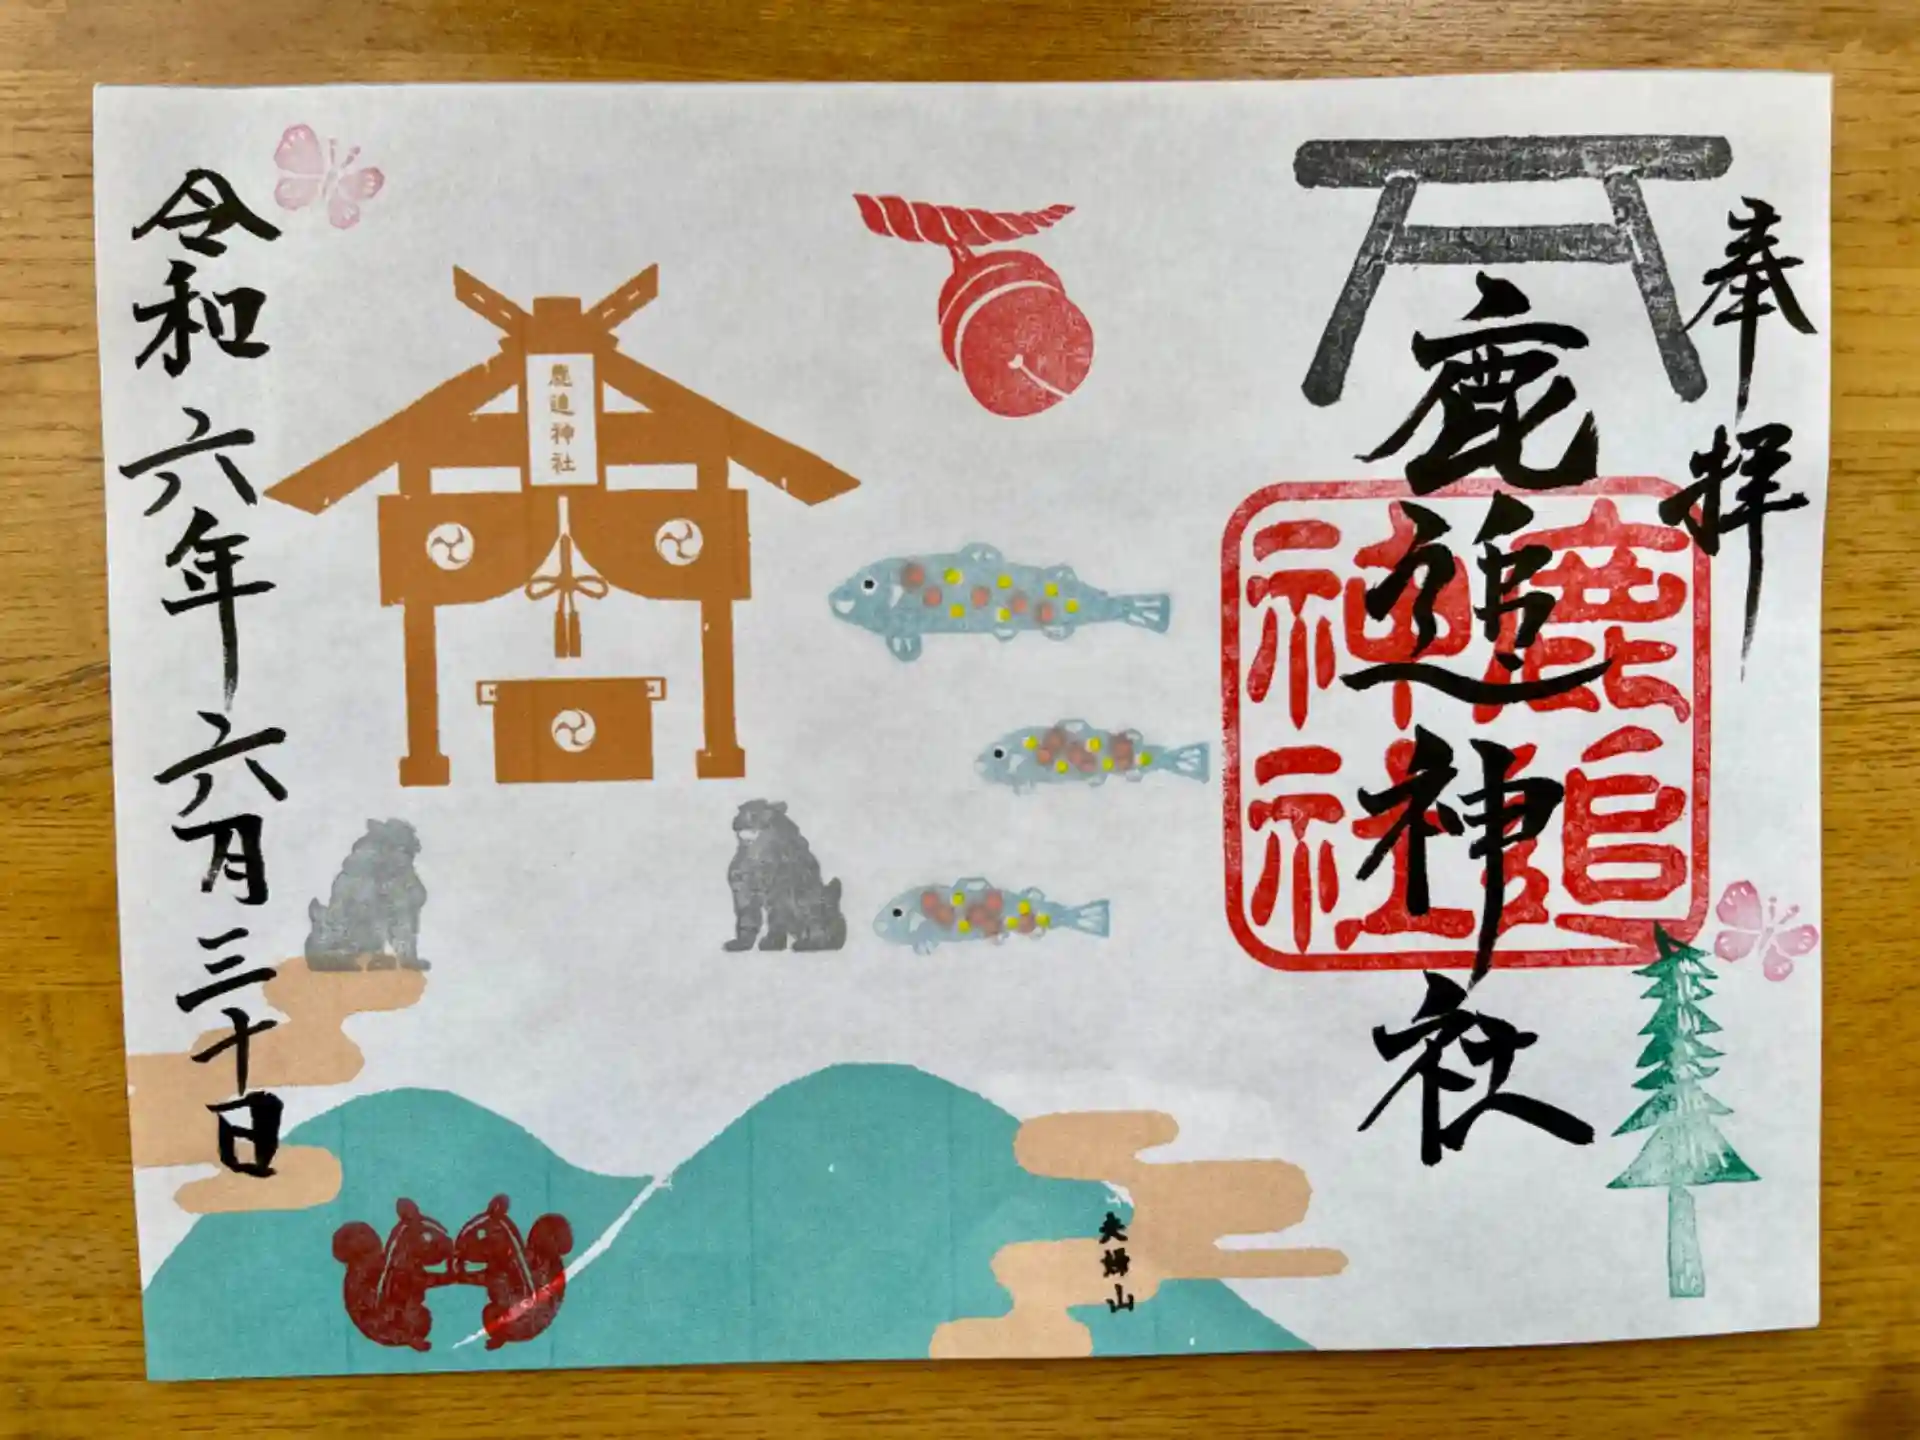 奉拝
鹿追神社
鹿追
神社
鹿追神社
夫婦山
令和六年六月三十日